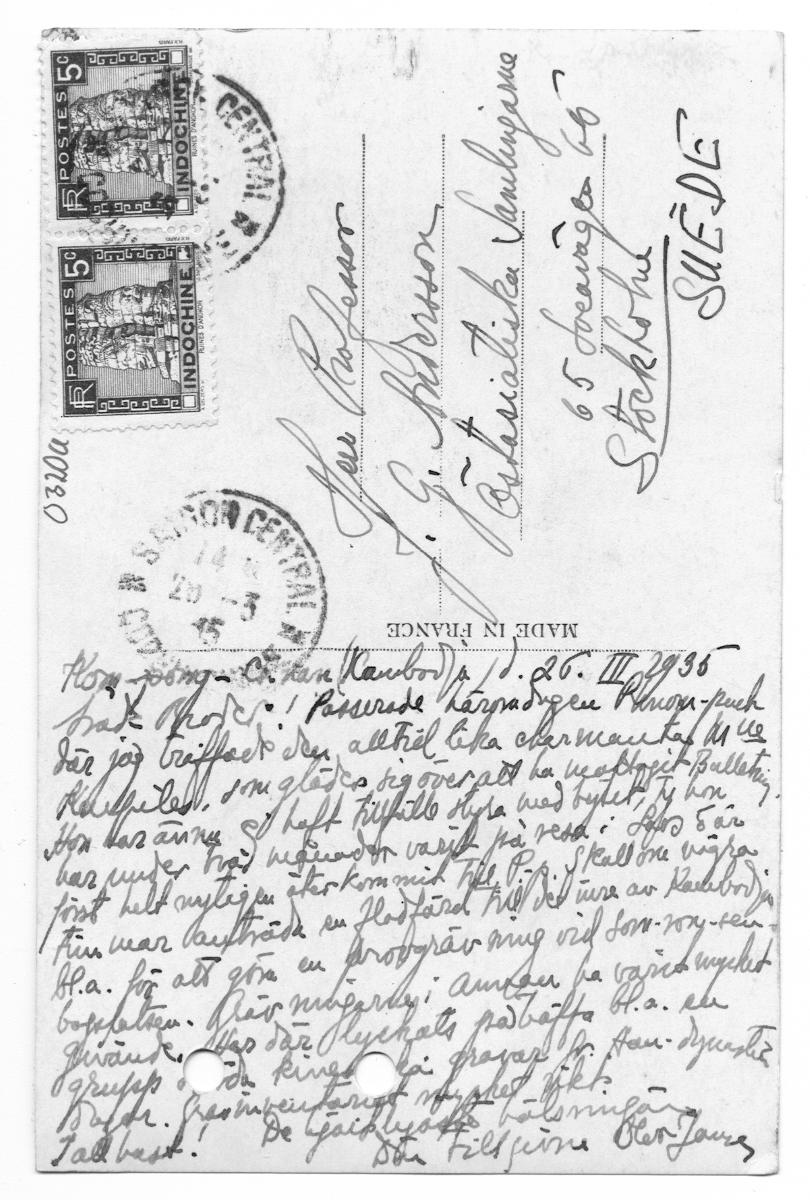 POSTES 5c
INDOCHINE
RF
RUINES D'ANGKOR
POSTES 5c
INDOCHINE
RF
RUINES D'ANGKOR
CENTRAL
0320a
SAIGON CENTRAL
14
26 -3
35
Herr Professor
J. G. Andersson
Östasiatiska Samlingarne
65 Sveavägen 65
Stockholm
SUÈDE
MADE IN FRANCE
Kom-pong-Ch'nan (Kambodja) d. 26. III 1935
Broder! Passerade häromdagen Pnom-penh
där jag träffade den alltid lika charmanta Mlle
som gläder sig över att ha mottagit Bulletin.
Hon har ännu ej haft tillfälle styra med bytet, ty hon
har under två månader varit på resa i Laos o är
först helt nyligen återkommit till P.-p. Skall om några
timmar anträda en flodfärd till det inre av Kambodja
bl.a. för att göra en provgrävning vid Som-ron-sen-
Grävningarne i Annam ha varit mycket
givande. Har där lyckats påträffa bl.a. en
grupp kinesiska gravar fr. Han-dynastins
dagar. Gravinventariet mycket rikt.
Tack! De hjärtligaste hälsningar
Din tillgivne Olov Janse